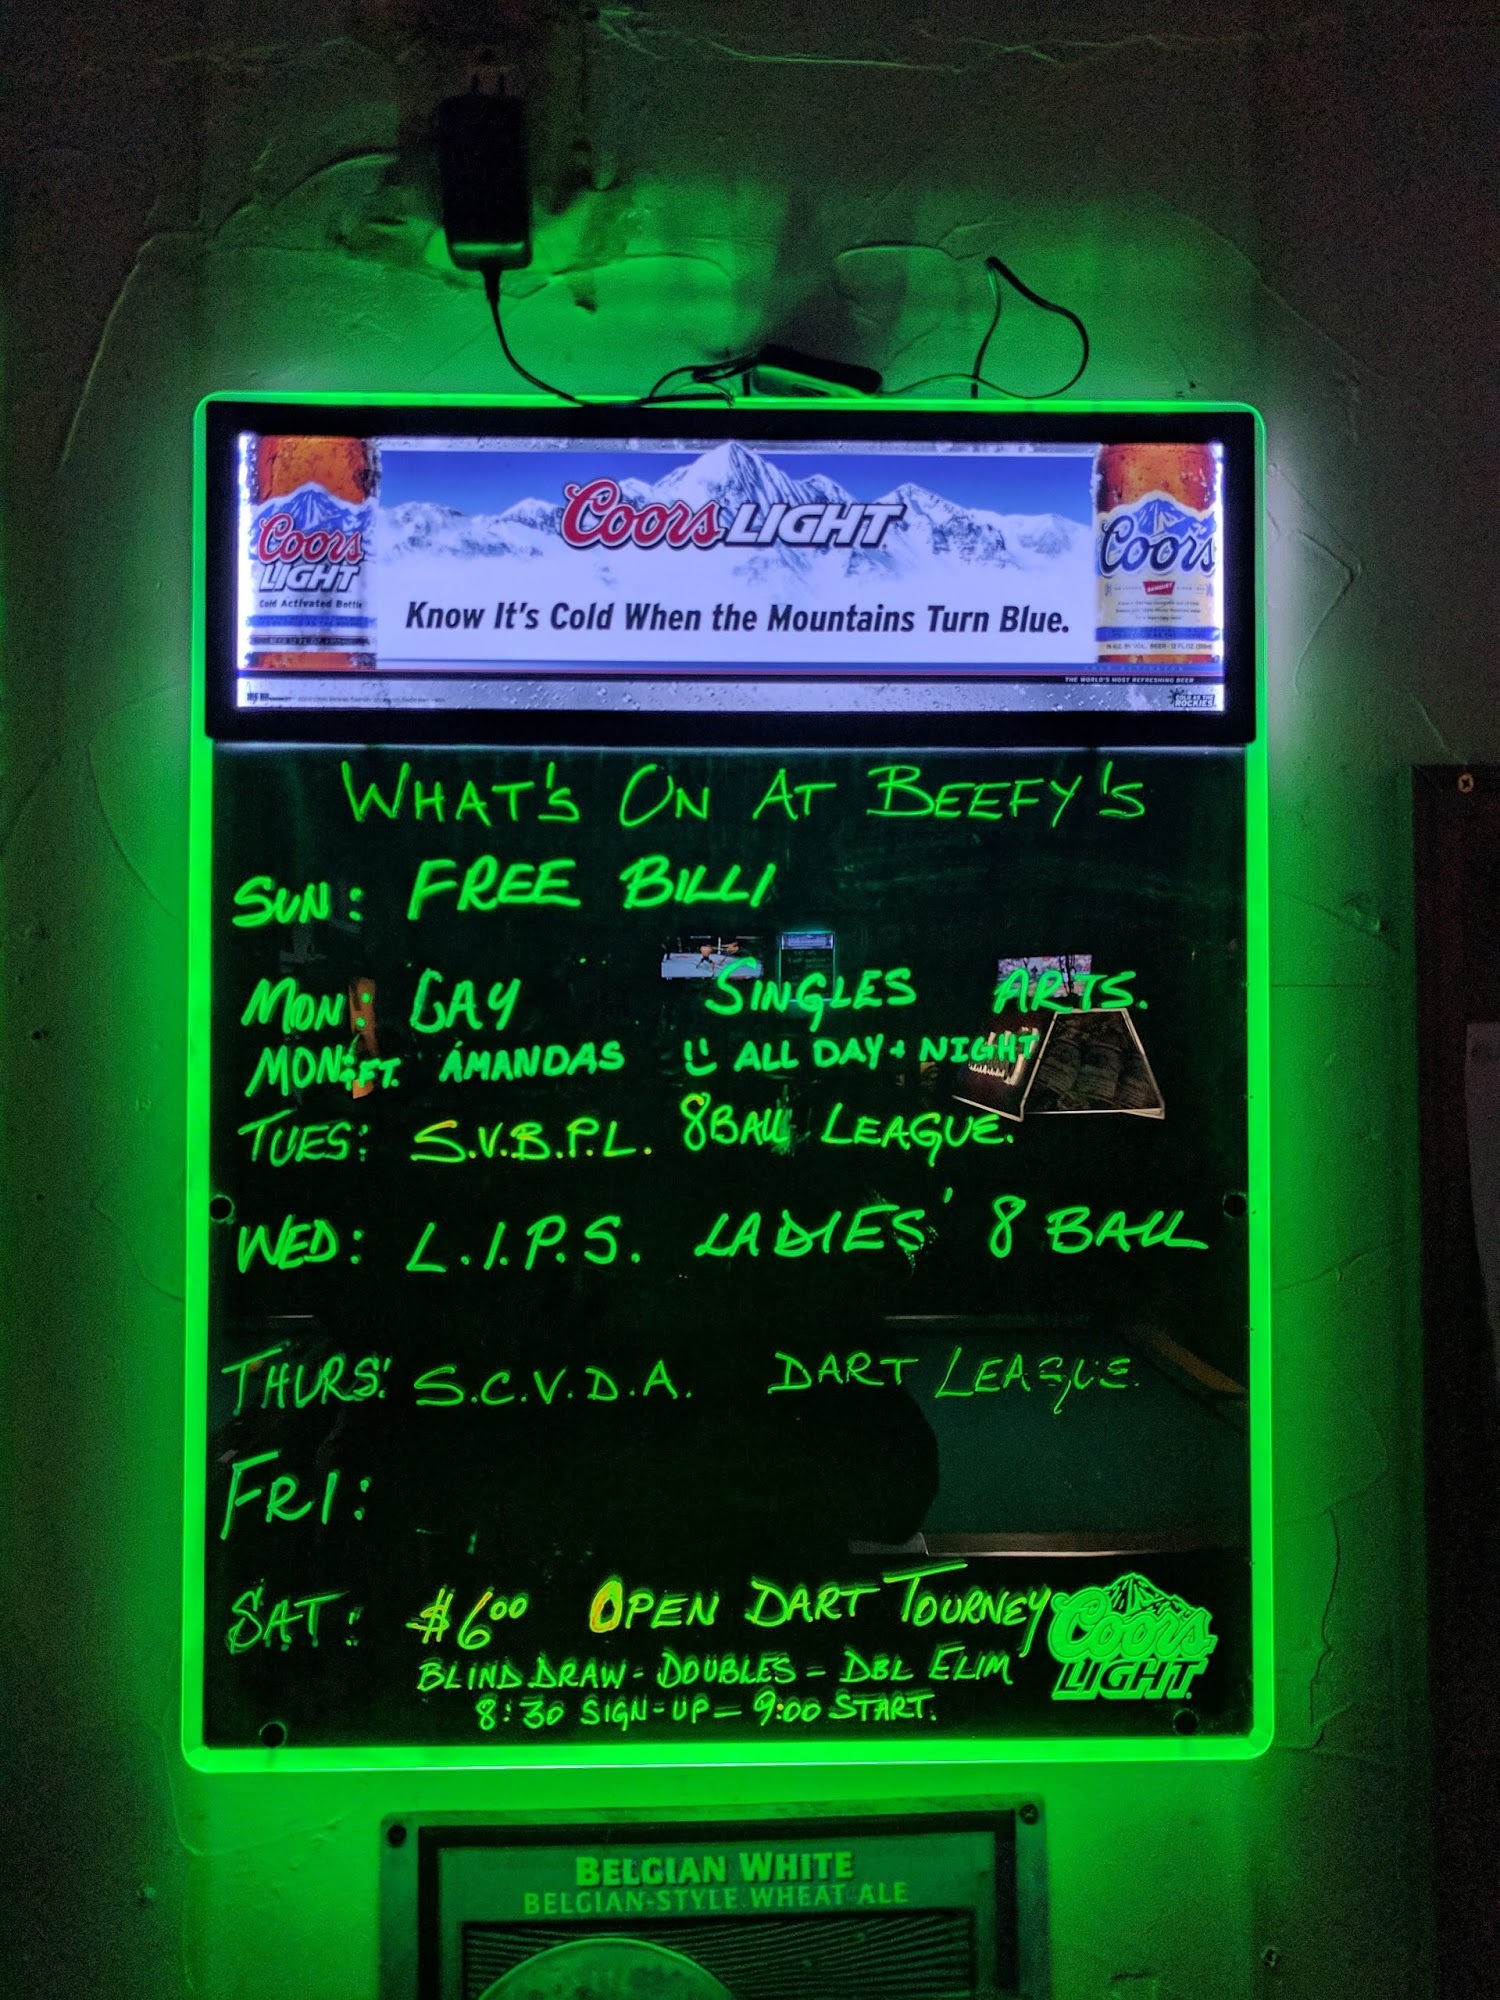 Coors LIGHT
Know It's Cold When the Mountains Turn Blue.
Coors
LIGHT
Cold Activated Bottle
Coors
BANQUET
THE WORLD'S MOST REFRESHING BEER
COLD AS THE
ROCKIES
WHAT'S ON AT BEEFY'S
SUN: FREE BILLI
MON: GAY SINGLES ARTS.
MON & FT. AMANDAS ALL DAY + NIGHT
TUES: S.V.B.P.L. 8 BALL LEAGUE.
WED: L.I.P.S. LADIES' 8 BALL
THURS: S.C.V.D.A. DART LEAGUE.
FRI:
SAT: $6.00 OPEN DART TOURNEY
BLIND DRAW - DOUBLES - DBL ELIM
8:30 SIGN-UP - 9:00 START.
Coors
LIGHT
BELGIAN WHITE
BELGIAN-STYLE WHEAT ALE